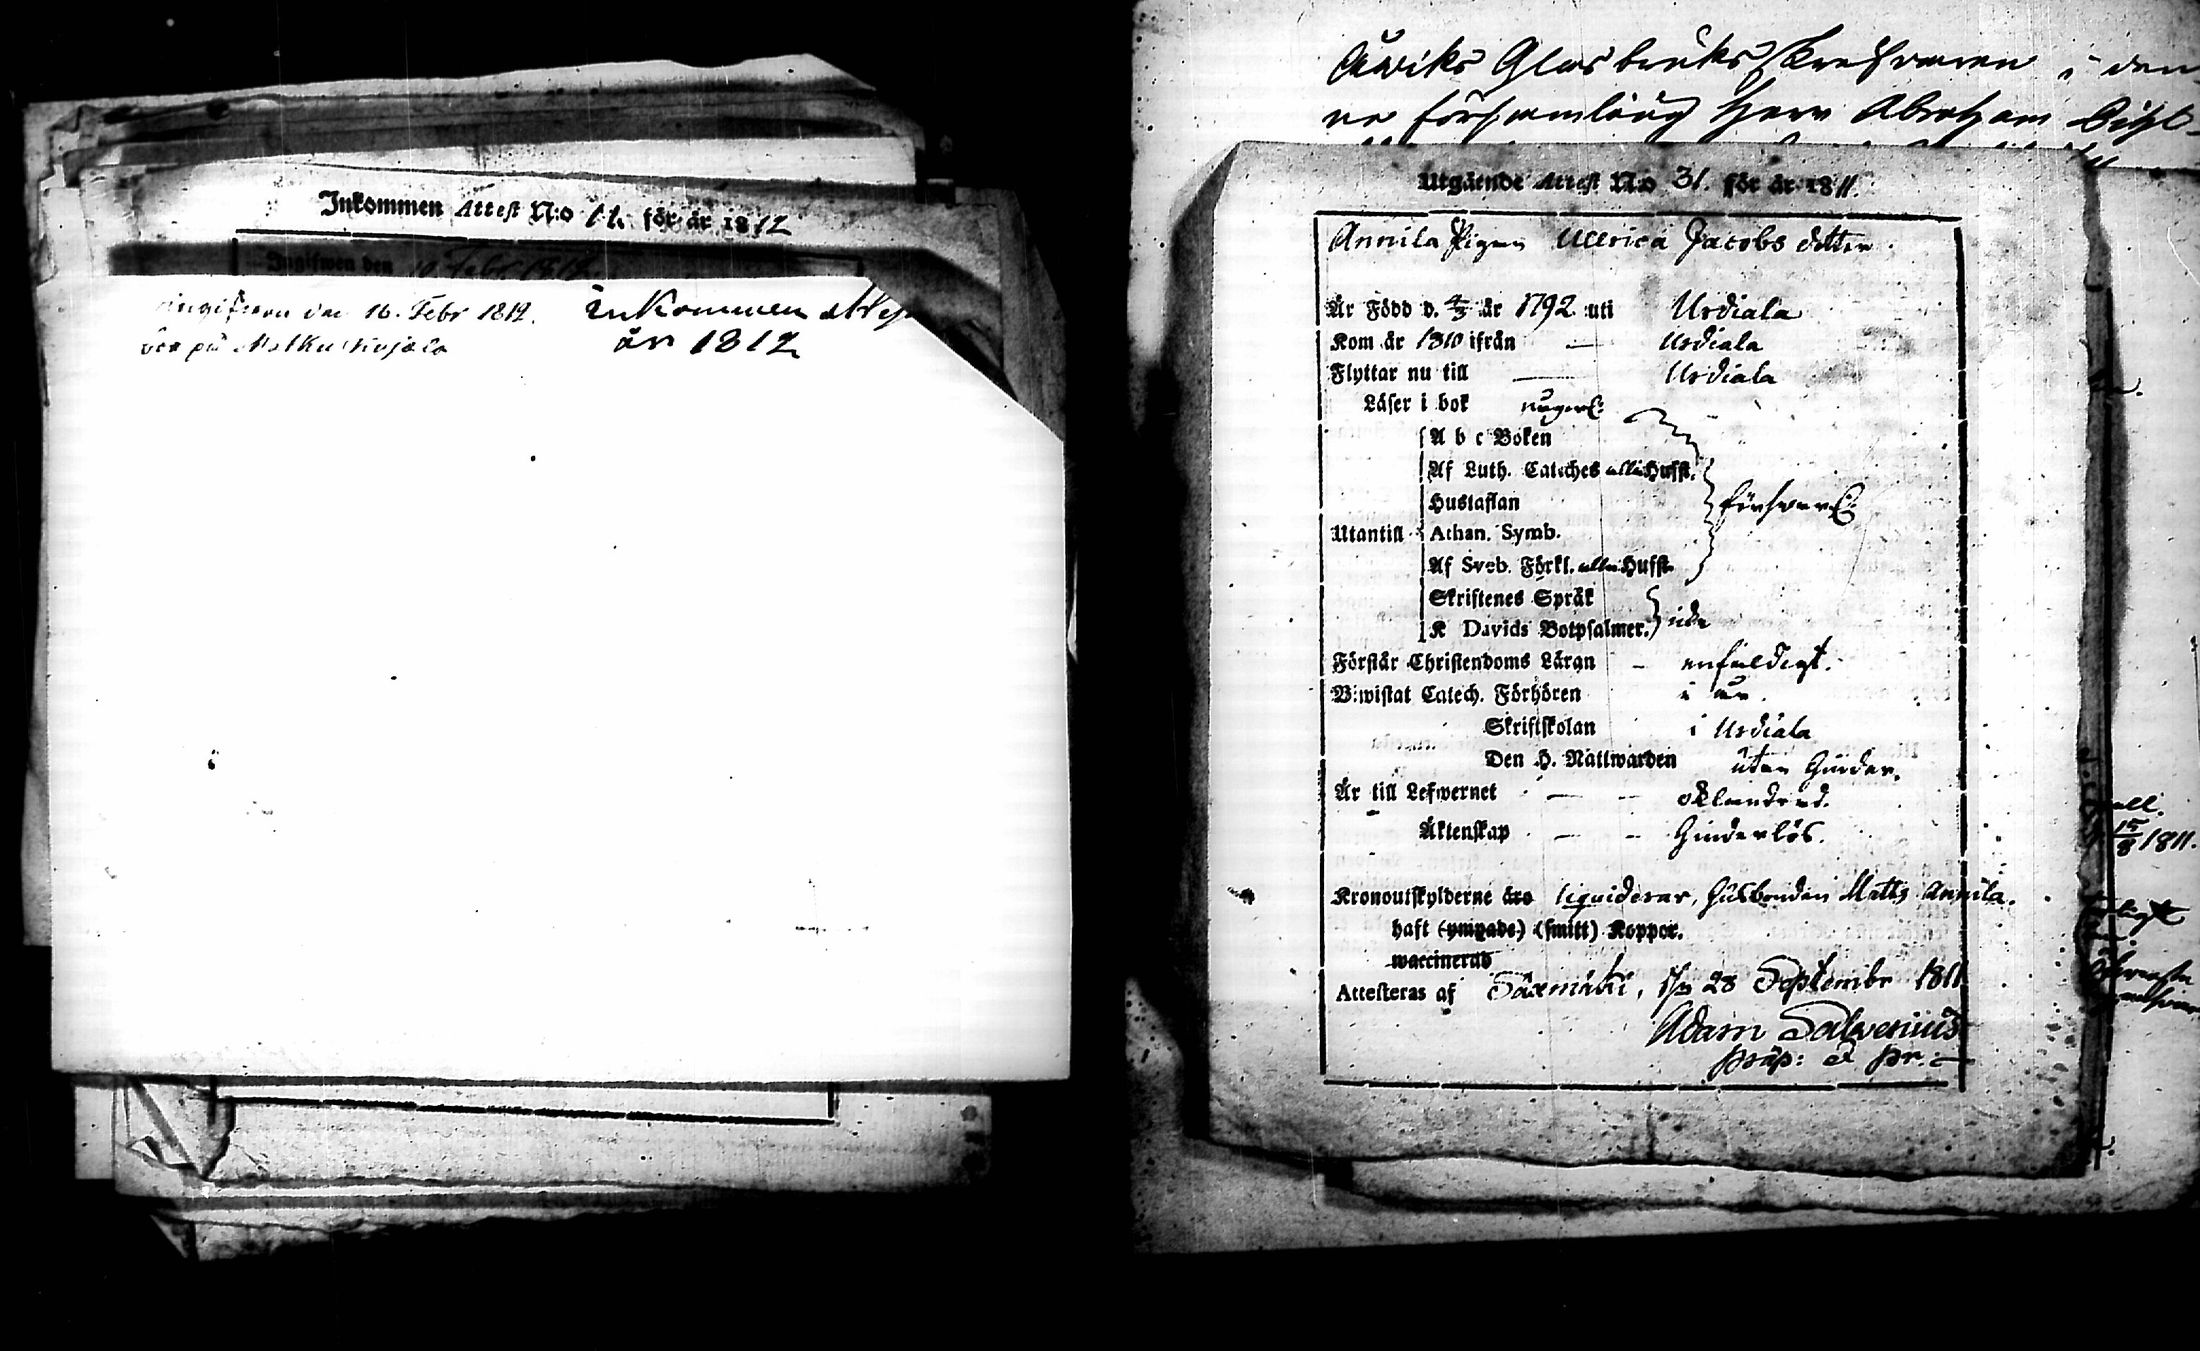 Inkommen Attest N:o 11. för år 1812
Ingifwen den Febr 1812
Ingifwen den 16. Febr 1812. Inkommen
bor på år 1812
Glasbruks i den
na församling Herr Abraham
Utgående Attest N:o 31. för år 1811.
Annila Pigan Ullrica Jacobs dotter.
Är Född d. 4/3 år 1792 uti Urdiala
Kom år 1810 ifrån — Urdiala
Flyttar nu till — Urdiala
Läser i bok
A b c Boken
Af Luth. Cateches alla Hufst.
Hustaflan
försvarl:
Utantill Athan. Symb.
Af Sveb. Förkl. alla Hufst.
Skriftenes Språk
K Davids Botpsalmer.
Förstår Christendoms Läran - enfaldigt.
Biwistat Catech. Förhören i år.
Skriftskolan i Urdiala
Den H. Nattwarden utan hinder.
Är till Lefwernet — - oklandrad.
Äktenskap — - hinderlös.
Kronoutskylderne äro liquiderar, Husbonden Matts Annila.
haft (ympade) (smitt) Koppor.
waccinerad
Attesteras af Sãxmäki, d. 28 Septembr 1811
Adam Salvenius
præp: & p:r:
all.
15/8 1811.